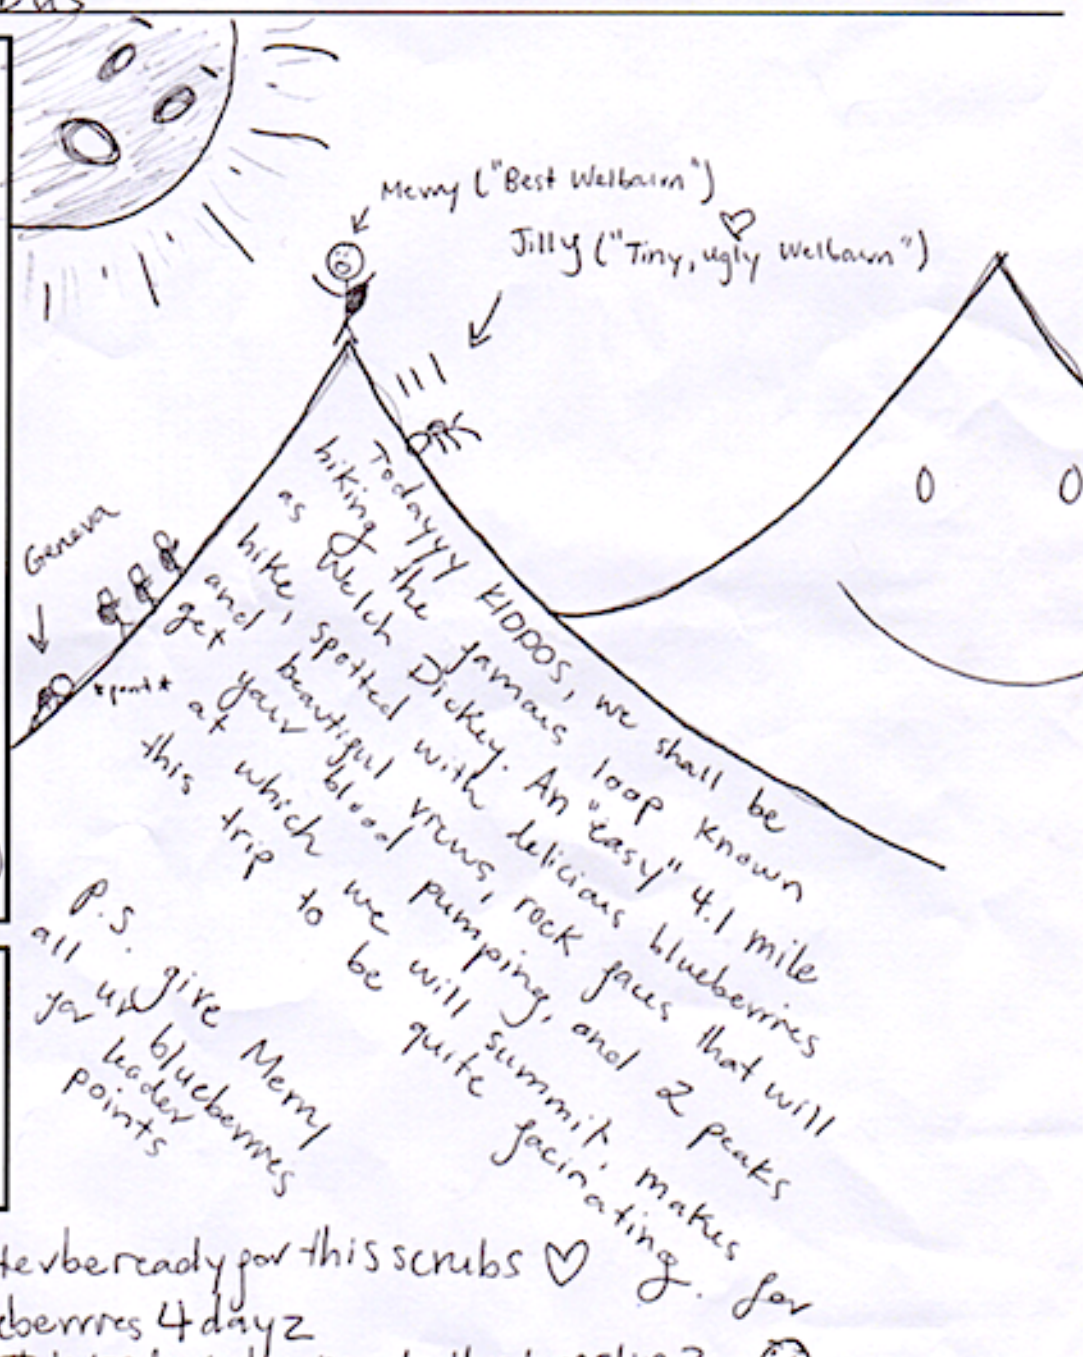 Merry ("Best Welbaum")
Jilly ("Tiny, ugly Welbaum")
Geneva
*pant*
Todayyy KIDDOS, we shall be
hiking the famous loop known
as Welch Dickey. An "easy" 4.1 mile
hike, spotted with delicious blueberries
and beautiful views, rock faces that will
get your blood pumping, and 2 peaks
at which we will summit, makes for
this trip to be quite facinating.
P.S. give Merry
all ur blueberries
for leader
points
terbereadyforthisscrubs ♡
eberries 4 dayz